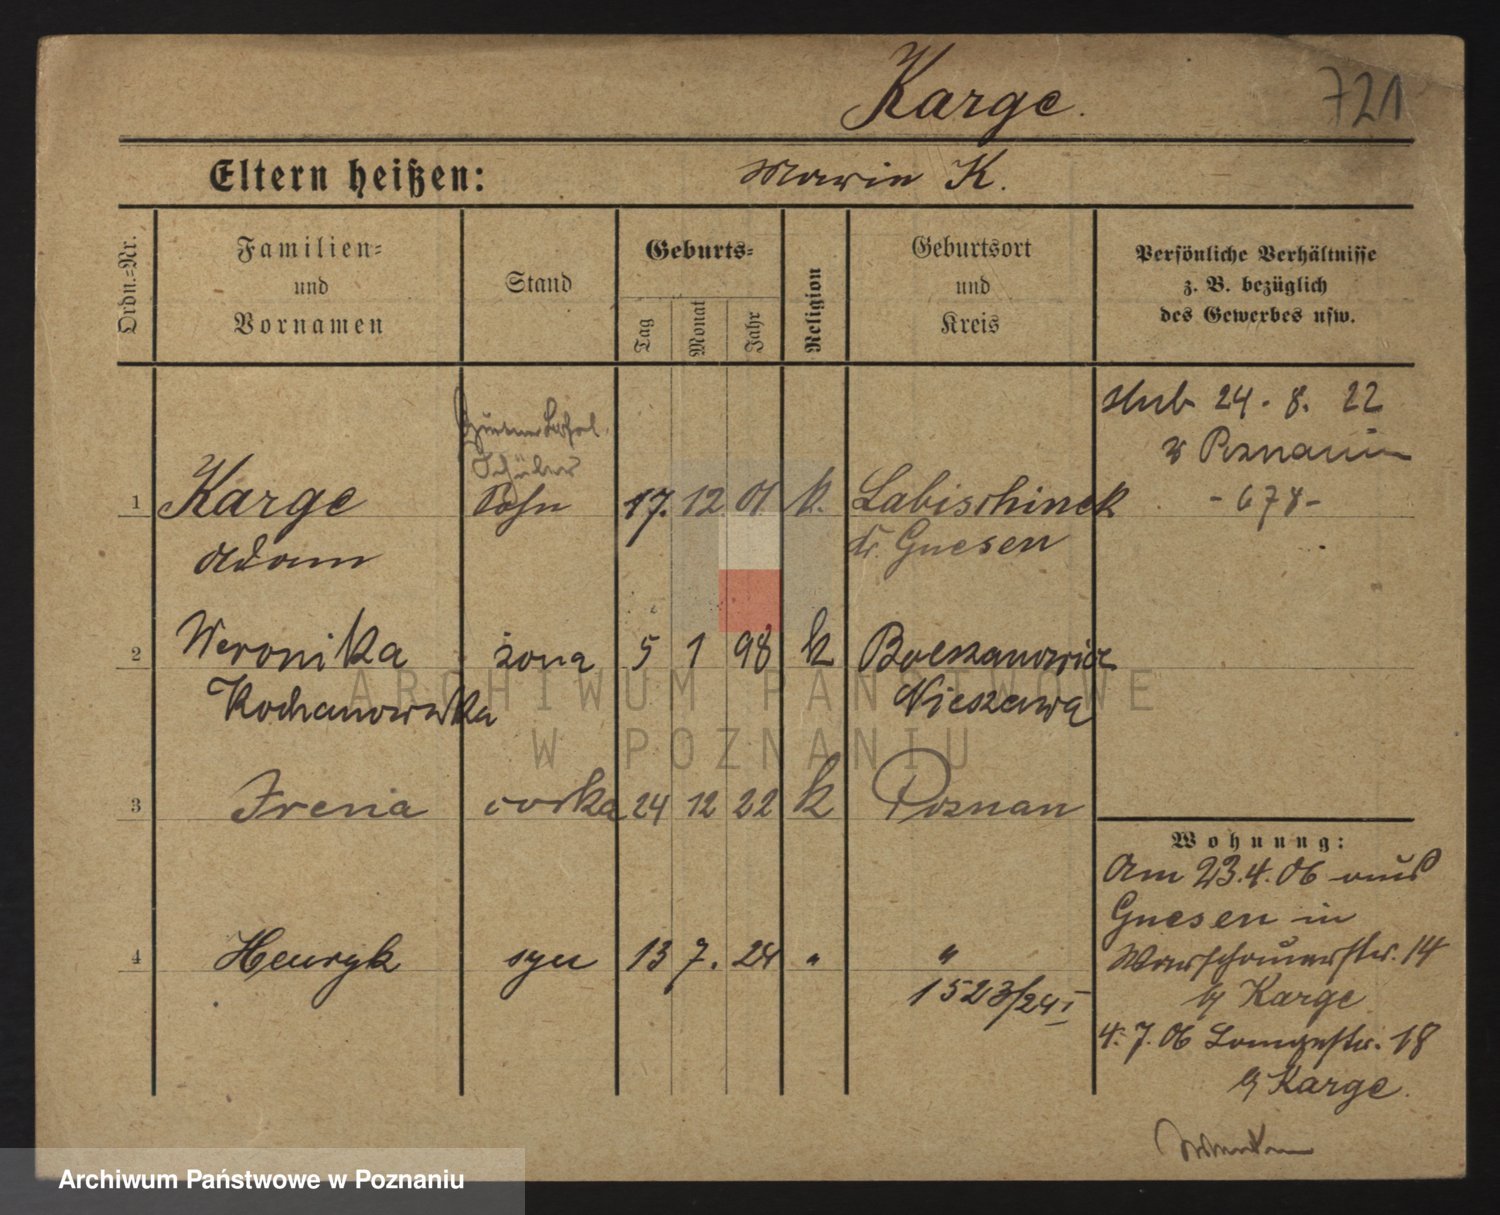 Karge.
721
Eltern heißen:
Maria K.
Ordn.-Nr.
Familien-
und
Vornamen
Stand
Geburts-
Tag
Monat
Jahr
Religion
Geburtsort
und
Kreis
Persönliche Verhältnisse
z. B. bezüglich
des Gewerbes usw.
ślub 24. 8. 22
w Poznaniu
- 678 -
Schüler
1 Karge Sohn 17. 12 01 k. Labischinek
Adam Kr. Gnesen
2 Weronika żona 5 1 98 k
Kochanowska Nieszawa
3 Irena córka 24 12 22 k Poznan
Wohnung:
Am 23.4.06 aus
Gnesen in
4 Henryk syn 13 7. 24 " "
Warschauerstr. 14
1523/24 I
b/ Karge
4.7.06 Langestr. 18
b/ Karge.
ARCHIWUM PAŃSTWOWE
W POZNANIU
Archiwum Państwowe w Poznaniu